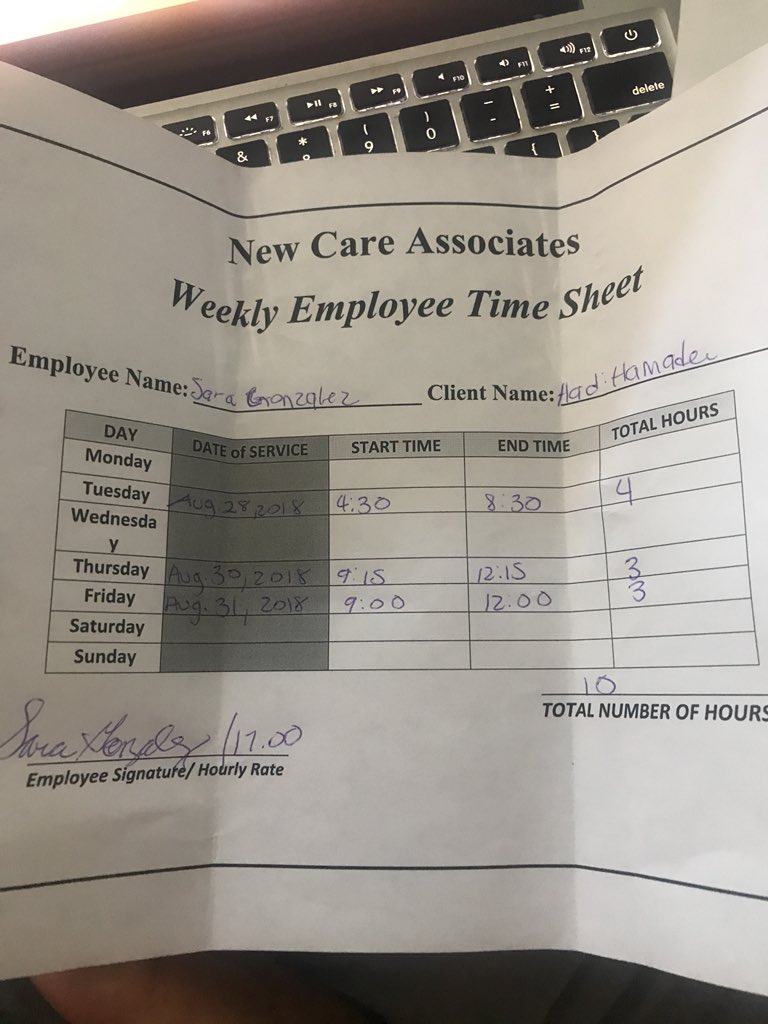 F6 F7 F8 F9 F10 F11 F12
delete
& * ( 9 ) 0 - + = { }
New Care Associates
Weekly Employee Time Sheet
Employee Name: Sara Gonzalez Client Name: Hadi Hamadeh
DAY DATE of SERVICE START TIME END TIME TOTAL HOURS
Monday
Tuesday Aug 28, 2018 4:30 8:30 4
Wednesda
y
Thursday Aug. 30, 2018 9:15 12:15 3
Friday Aug. 31, 2018 9:00 12:00 3
Saturday
Sunday
10
TOTAL NUMBER OF HOURS
Sara Gonzalez /17.00
Employee Signature/ Hourly Rate